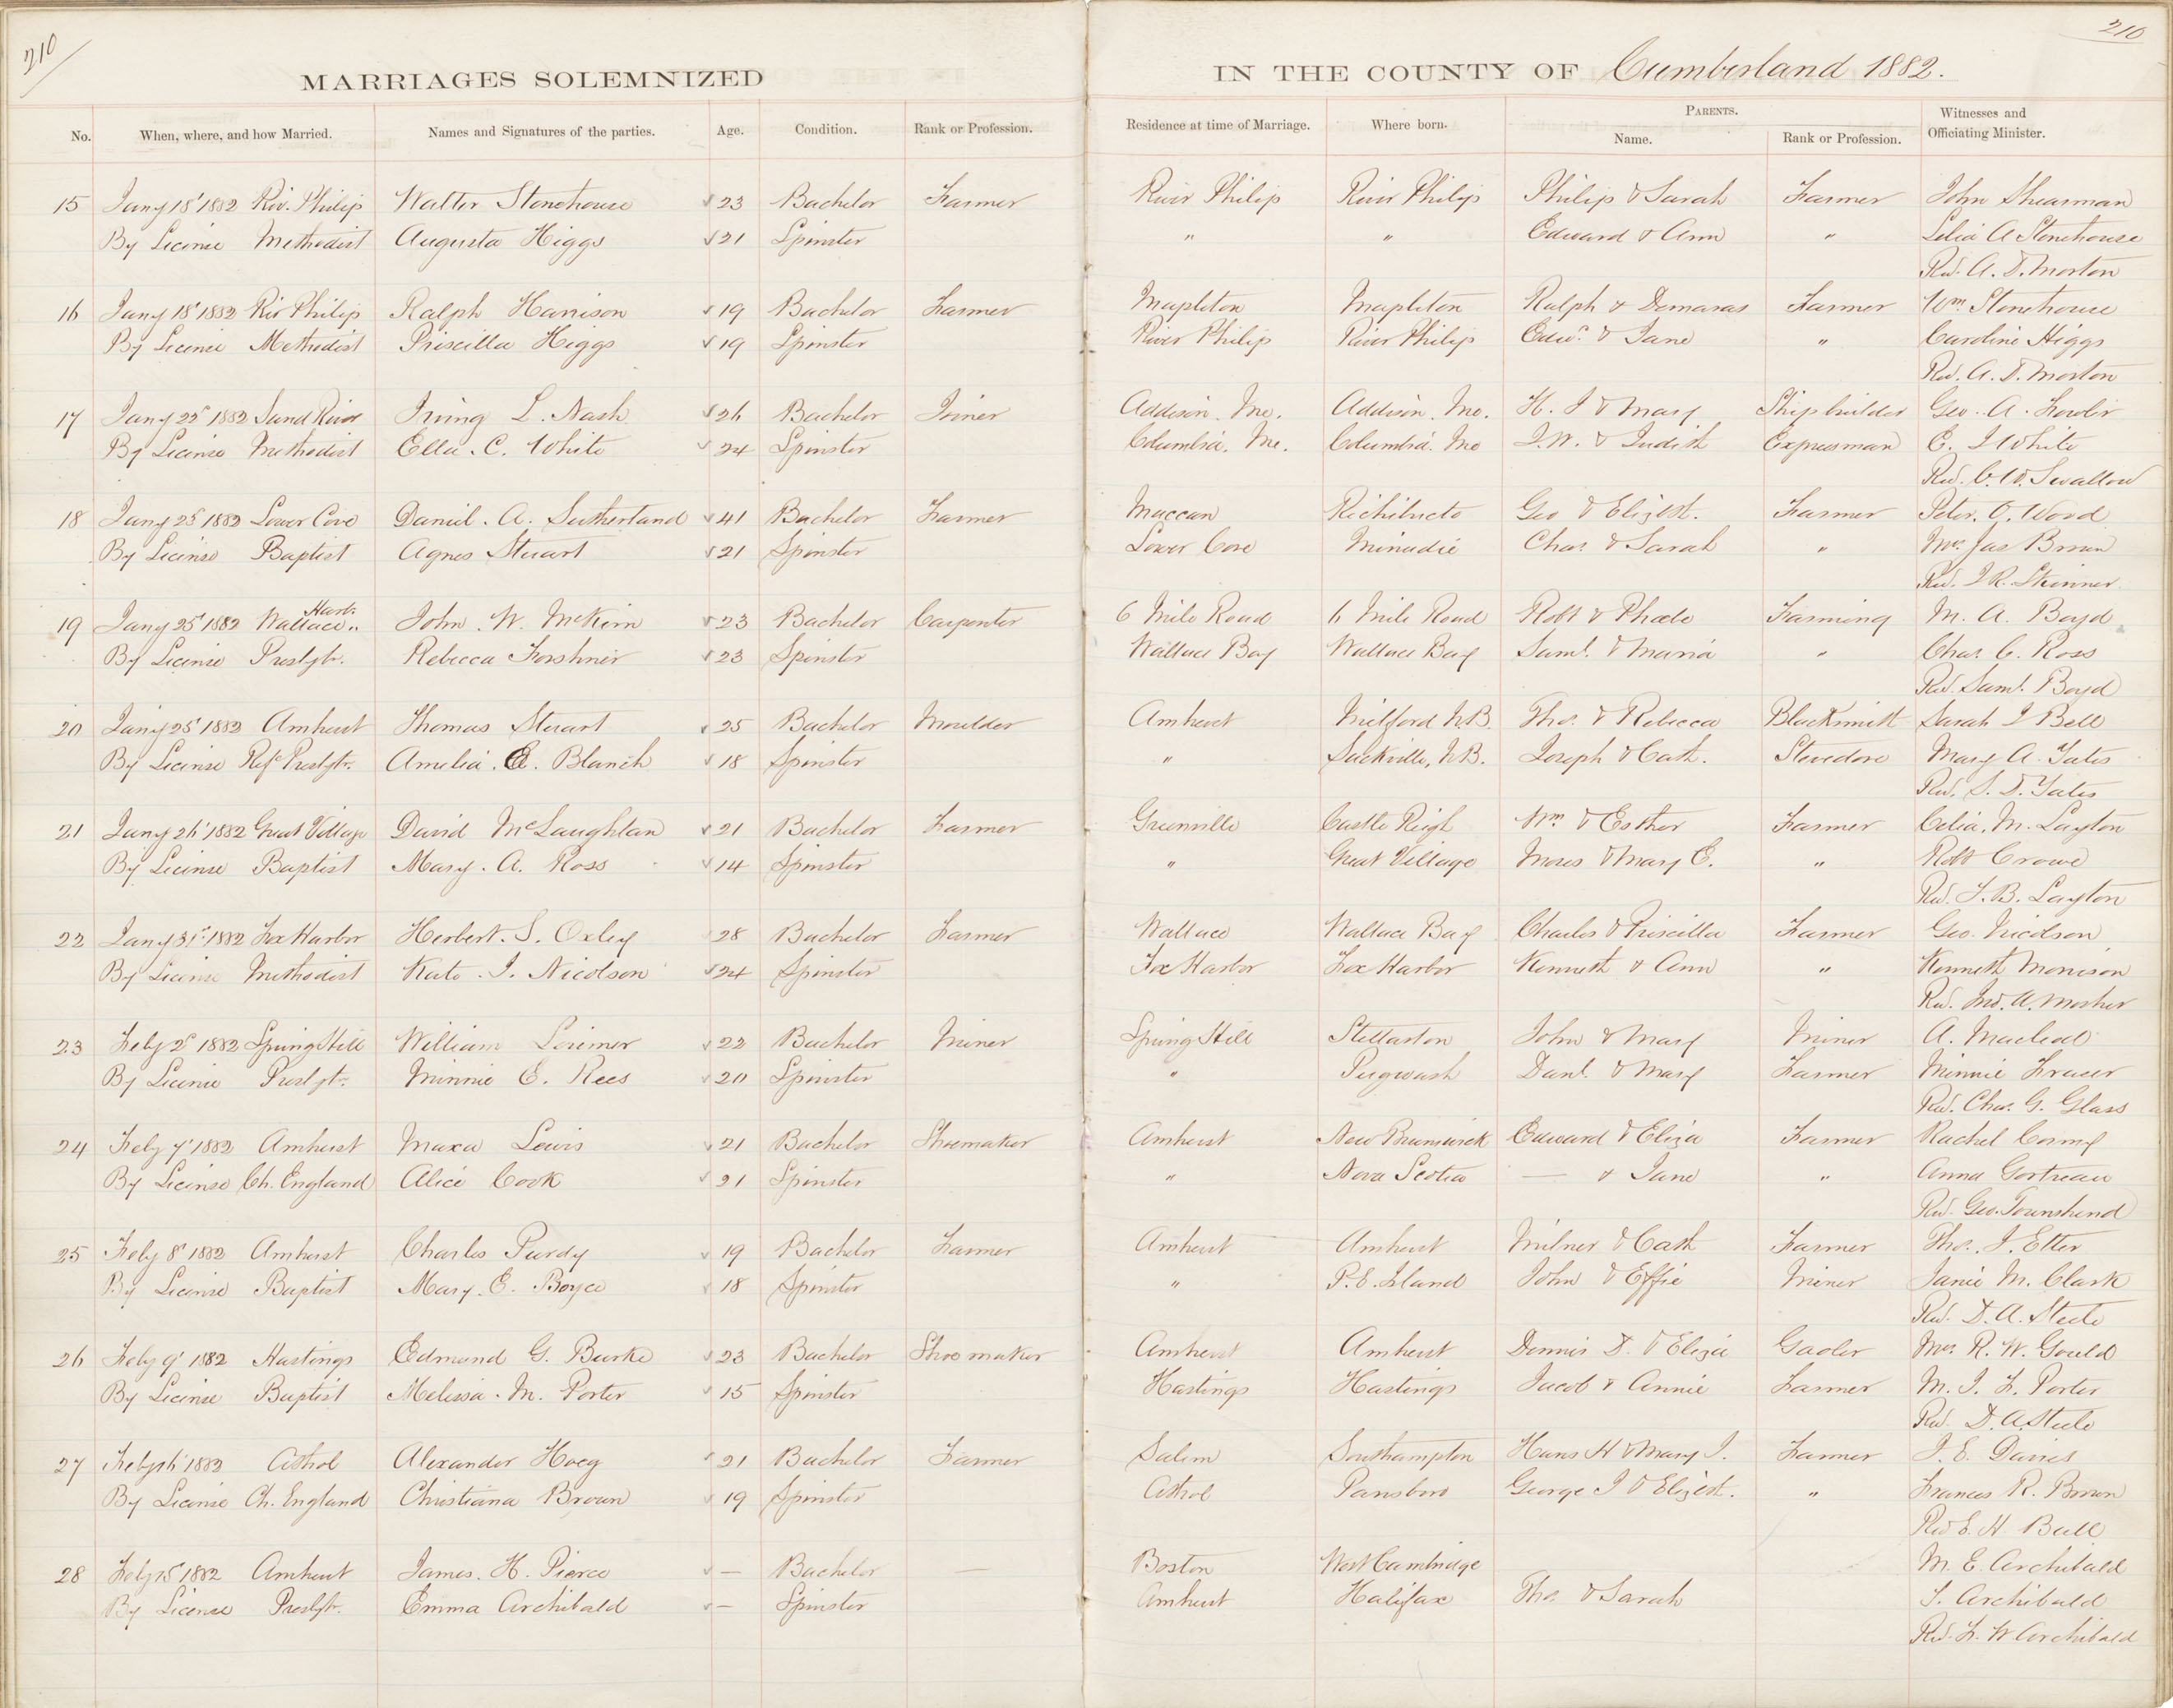 210
210
MARRIAGES SOLEMNIZED IN THE COUNTY OF Cumberland 1882.
No. When, where, and how Married. Names and Signatures of the parties. Age. Condition. Rank or Profession. Residence at time of Marriage. Where born. PARENTS. Name. Rank or Profession. Witnesses and Officiating Minister.
15 Jany 18" 1882 Riv. Philip Walter Stonehouse 23 Bachelor Farmer River Philip River Philip Philip & Sarah Farmer John Shearman
By License Methodist Augusta Higgs 21 Spinster " " Edward & Ann " Lelia A Stonehouse
Rev. A. D. Morton
16 Jany 18" 1882 Riv Philip Ralph Harrison 19 Bachelor Farmer Mapleton Mapleton Ralph & Demaras Farmer Wm Stonehouse
By License Methodist Priscilla Higgs 19 Spinster River Philip River Philip Edwd & Jane " Caroline Higgs
Rev. A. D. Morton
17 Jany 22d 1882 Sand River Irving L. Nash 26 Bachelor Joiner Addison. Me. Addison. Me. H. J & Mary Shipbuilder Geo. A. Fowler
By License Methodist Ella. C. White 24 Spinster Columbia. Me. Columbia. Me J. W. & Judith Expressman E. J White
Rev. C. W. Swallow
18 Jany 25" 1882 Lower Cove Daniel. A. Sutherland 41 Bachelor Farmer Maccan Richibucto Geo & Elizbt. Farmer Peter. O. Wood
By License Baptist Agnes Stewart 21 Spinster Lower Cove Minudie Chas. & Sarah " Mrs. Jas Brown
Rev. I R. Skinner
19 Jany 25" 1882 Wallace Harb. John. W. McKim 23 Bachelor Carpenter 6 Mile Road 6 Mile Road Robt & Phoebe Farming M. A. Boyd
By License Presbytr. Rebecca Forshner 23 Spinster Wallace Bay Wallace Bay Saml. & Maria " Chas. C. Ross
Rev. Saml. Boyd
20 Jany 25" 1882 Amherst Thomas Stewart 25 Bachelor Moulder Amherst Milford N.B. Thos. & Rebecca Blacksmith Sarah J Bell
By License Refd Presbytr. Amelia. E. Blanch 18 Spinster " Sackville, N.B. Joseph & Cath. Stevedore Mary A. Yates
Rev. S. D. Yates
21 Jany 26" 1882 Great Village David McLaughlan 21 Bachelor Farmer Greenville Castle Reigh Wm & Esther Farmer Celia. M. Layton
By License Baptist Mary. A. Ross 14 Spinster " Great Village Moses & Mary E. " Robt Crowe
Rev. F. B. Layton
22 Jany 31st 1882 Fox Harbor Herbert. S. Oxley 28 Bachelor Farmer Wallace Wallace Bay Charles & Priscilla Farmer Geo. Nicolson
By License Methodist Kate. J. Nicolson 24 Spinster Fox Harbor Fox Harbor Kenneth & Ann " Kenneth Morrison
Rev. Jno. A. Mosher
23 Feby 2d 1882 Spring Hill William Lorimer 22 Bachelor Miner Spring Hill Stellarton John & Mary Miner A. Macleod
By License Presbytr. Minnie E. Rees 20 Spinster " Pugwash Danl. & Mary Farmer Minnie Fraser
Rev. Chas. G. Glass
24 Feby 7" 1882 Amherst Maxa Lewis 21 Bachelor Shoemaker Amherst New Brunswick Edward & Eliza Farmer Rachel
By License Ch. England Alice Cook 21 Spinster " Nova Scotia — & Jane " Anna
Rev. Geo. Townshend
25 Feby 8" 1882 Amherst Charles Purdy 19 Bachelor Farmer Amherst Amherst Milner & Cath Farmer Thos. J. Etter
By License Baptist Mary. E. Boyce 18 Spinster " P.E. Island John & Effie Miner Janie M. Clark
Rev. D. A. Steele
26 Feby 9" 1882 Hastings Edmund G. Burke 23 Bachelor Shoe maker Amherst Amherst Dennis D. & Eliza Gaoler Mrs. R. W. Gould
By License Baptist Melissa. M. Porter 15 Spinster Hastings Hastings Jacob & Annie Farmer M. J. F. Porter
Rev. D. A Steele
27 Feby 16" 1882 Athol Alexander Hoeg 21 Bachelor Farmer Salem Southampton Hans H & Mary J. Farmer J. E. Davies
By License Ch. England Christiana Brown 19 Spinster Athol Parrsboro George J & Elizbt. " Frances R. Brown
Rev E. H. Ball
28 Feby 15" 1882 Amherst James. H. Pierce — Bachelor — Boston West Cambridge M. E. Archibald
By License Presbytr. Emma Archibald — Spinster Amherst Halifax Thos. & Sarah S. Archibald
Rev. F. W Archibald